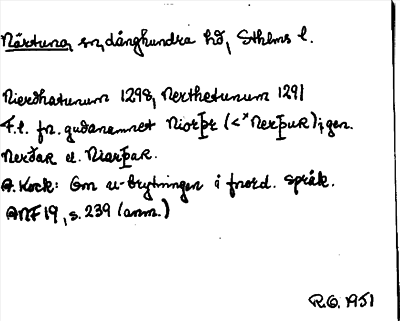 Närtuna, sn, Långhundra hd, Sthlms l.
Nierdhatunum 1298, Nerthetunum 1291
F.l. fn. gudanamnet Niorþr (<*Nerþur); gen.
Nerðar el. Niarþar.
A. Kock: Om u-brytningen i fnord. språk.
ANF 19, s. 239 (anm.)
R.O. 1951